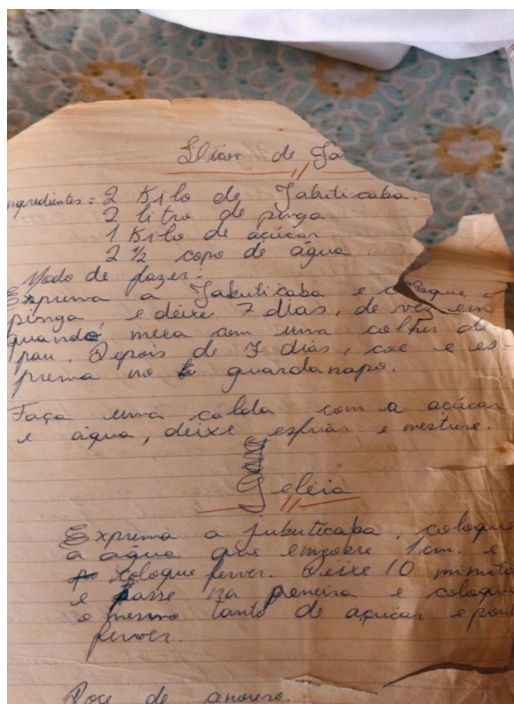 Licor de Ja
ngredientes = 2 Kilo de Jabuticaba.
2 litro de pinga
1 Kilo de açúcar
2 ½ copo de água
Modo de fazer:
Exprema a Jabuticaba e coloque a
pinga, e deixe 7 dias, de vez em
quando mexa com uma colher de
pau. Depois de 7 dias, coe e es-
prema no guardanapo.
Faça uma calda com a açúcar
e água, deixe esfriar e misture.
Geléia
Exprema a jubuticaba, coloque
a água que emcobre 1 cm. e
coloque ferver. Deixe 10 minuto
e passe na peneira e coloque
o mesmo tanto de açúcar e pon
ferver.
Doce de